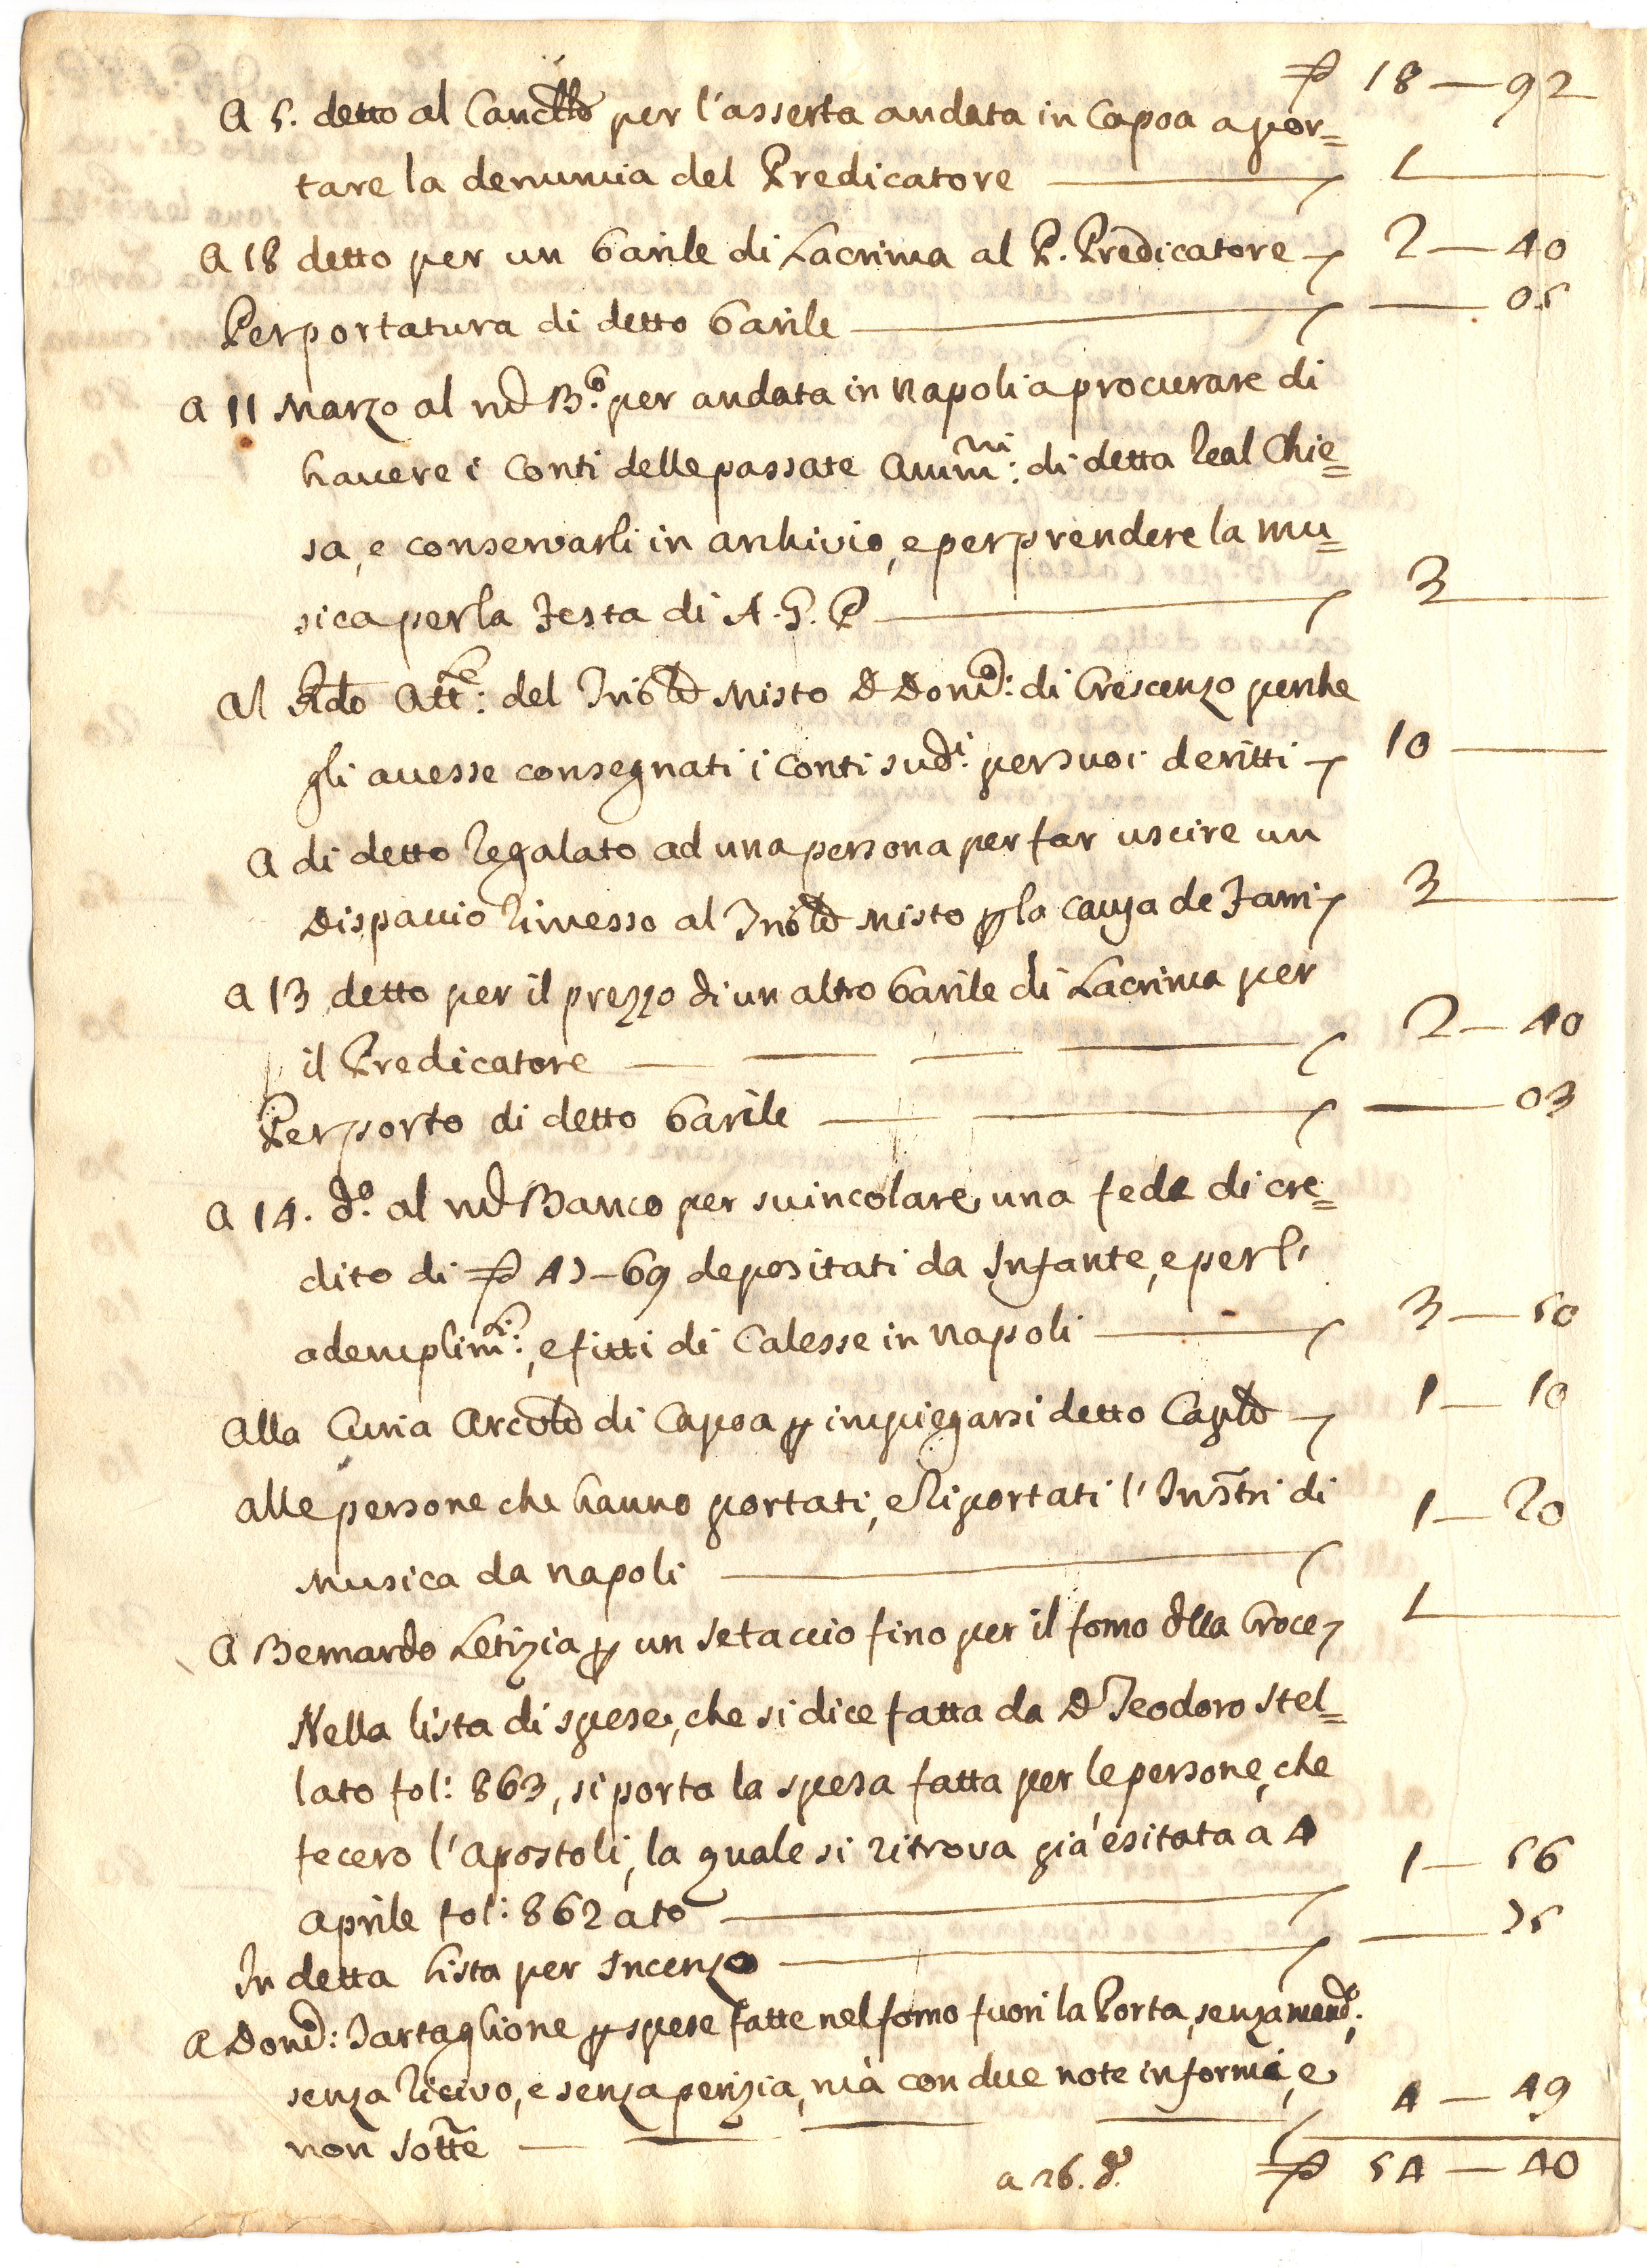 18 — 92
A 5. detto al Canc.llo per l'asserta andata in Capoa a por=
tare la denuncia del Predicatore — 1 —
A 18 detto per un barile di Lacrima al P. Predicatore — 2 — 40
Per portatura di detto barile — 05
A 11 Marzo al md. B.co per andata in Napoli a procurare di
havere i Conti delle passate Amm.ni: di detta Real Chie=
sa, e conservarli in archivio, e per prendere la mu=
sica per la Festa di A. G. P — 3 —
Al Mdo Att.e: del Trible Misto D. Dom.co: di Crescenzo perche
gli avesse consegnati i Conti sud.i: per suoi deritti — 10 —
A di detto Regalato ad una persona per far uscire un
Dispaccio Rimesso al Trible Misto p la causa de Forni — 3 —
A 13 detto per il prezzo di un altro barile di Lacrima per
il Predicatore — 2 — 40
Per porto di detto barile — 03
A 14. d.o al md. Banco per svincolare una fede di cre=
dito di 47 — 69 depositati da Infante, e per l'
ademplim.ti:, e fitti di Calesse in Napoli — 3 — 50
Alla Curia Arcvle di Capoa p impiegarsi detto Caple — 1 — 10
Alle persone che hanno portati, e Riportati l'Instri di
Musica da Napoli — 1 — 20
A Bernardo Letizia p un setaccio fino per il forno della Croce — 1 —
Nella lista di spese, che si dice fatta da D. Teodoro Stel=
lato fol: 863, si porta la spesa fatta per le persone, che
fecero l'Apostoli, la quale si ritrova già esitata a 4
Aprile fol: 862 a to — 1 — 56
In detta lista per Incenzo — 75
A Dom.co: Tartaglione p spese fatte nel forno fuori la Porta, senza mand.o:,
senza Ricivo, e senza perizia, mà con due note informi, e
non sotte — 4 — 49
a 26. d.
54 — 40